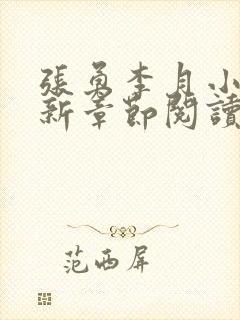 張勇李月小
新章節閱讀
范西屏